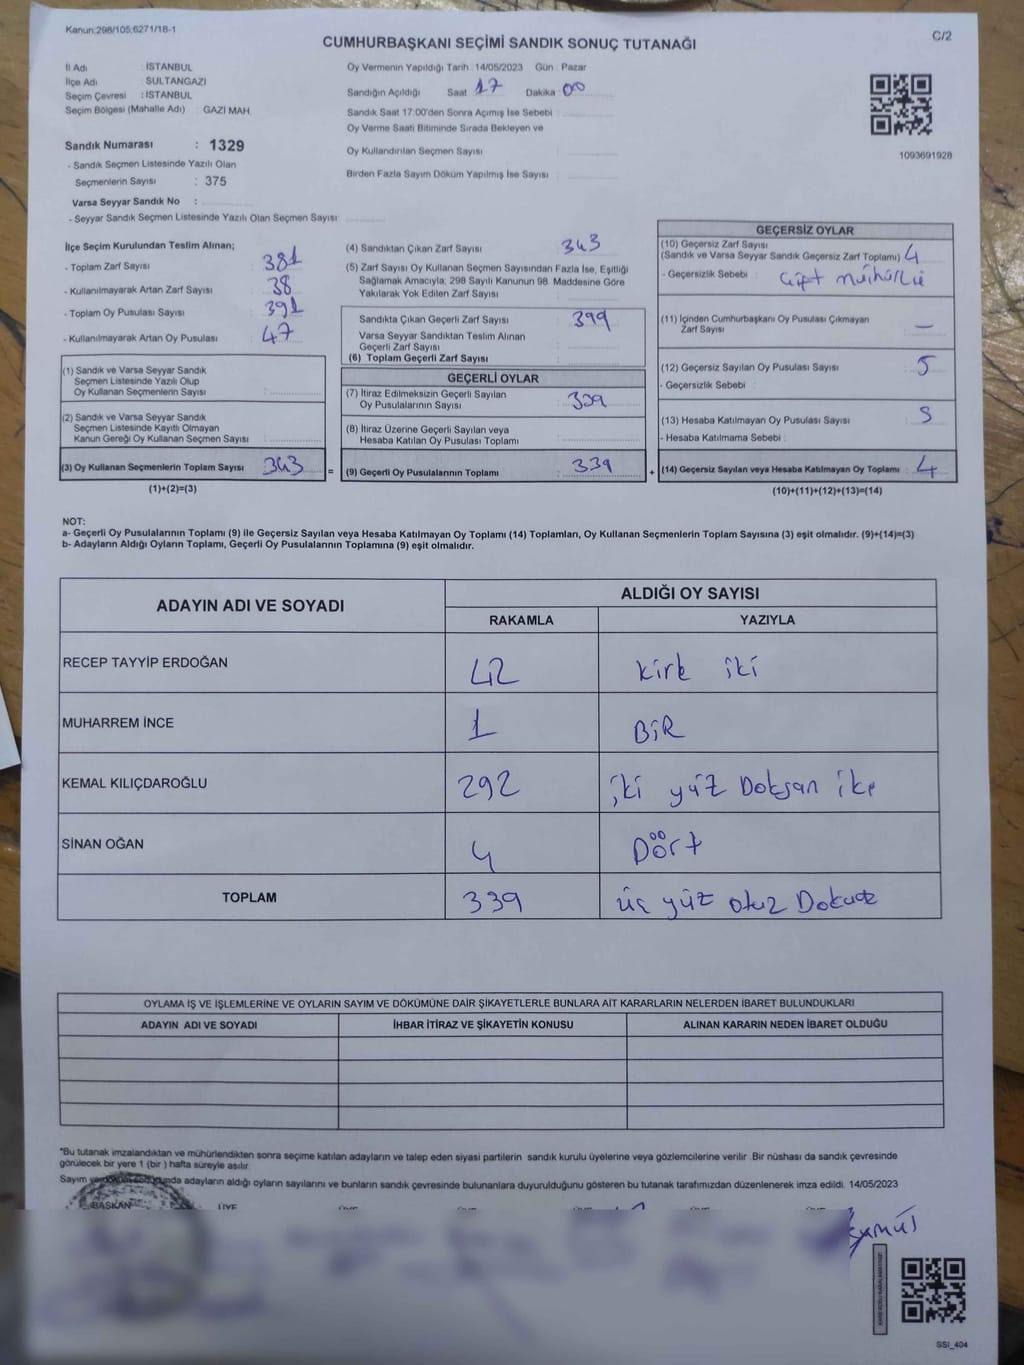 Kanun:298/105;6271/18-1
C/2
CUMHURBAŞKANI SEÇİMİ SANDIK SONUÇ TUTANAĞI
İl Adı : İSTANBUL
İlçe Adı : SULTANGAZİ
Seçim Çevresi : İSTANBUL
Seçim Bölgesi (Mahalle Adı) GAZİ MAH.
Sandık Numarası : 1329
- Sandık Seçmen Listesinde Yazılı Olan
Seçmenlerin Sayısı : 375
Varsa Seyyar Sandık No :
- Seyyar Sandık Seçmen Listesinde Yazılı Olan Seçmen Sayısı:
Oy Vermenin Yapıldığı Tarih : 14/05/2023 Gün : Pazar
Sandığın Açıldığı Saat 17 Dakika 00
Sandık Saat 17:00'den Sonra Açılmış İse Sebebi :
Oy Verme Saati Bitiminde Sırada Bekleyen ve
Oy Kullandırılan Seçmen Sayısı :
Birden Fazla Sayım Döküm Yapılmış İse Sayısı :
1093691928
İlçe Seçim Kurulundan Teslim Alınan;
- Toplam Zarf Sayısı : 381
- Kullanılmayarak Artan Zarf Sayısı : 38
- Toplam Oy Pusulası Sayısı : 391
- Kullanılmayarak Artan Oy Pusulası : 47
(1) Sandık ve Varsa Seyyar Sandık
Seçmen Listesinde Yazılı Olup
Oy Kullanan Seçmenlerin Sayısı :
(2) Sandık ve Varsa Seyyar Sandık
Seçmen Listesinde Kayıtlı Olmayan
Kanun Gereği Oy Kullanan Seçmen Sayısı :
(3) Oy Kullanan Seçmenlerin Toplam Sayısı : 343
(1)+(2)=(3)
=
(4) Sandıktan Çıkan Zarf Sayısı : 343
(5) Zarf Sayısı Oy Kullanan Seçmen Sayısından Fazla İse, Eşitliği
Sağlamak Amacıyla; 298 Sayılı Kanunun 98. Maddesine Göre
Yakılarak Yok Edilen Zarf Sayısı :
Sandıkta Çıkan Geçerli Zarf Sayısı : 399
Varsa Seyyar Sandıktan Teslim Alınan
Geçerli Zarf Sayısı :
(6) Toplam Geçerli Zarf Sayısı :
GEÇERLİ OYLAR
(7) İtiraz Edilmeksizin Geçerli Sayılan
Oy Pusulalarının Sayısı : 339
(8) İtiraz Üzerine Geçerli Sayılan veya
Hesaba Katılan Oy Pusulası Toplamı :
(9) Geçerli Oy Pusulalarının Toplamı : 339
+
GEÇERSİZ OYLAR
(10) Geçersiz Zarf Sayısı
(Sandık ve Varsa Seyyar Sandık Geçersiz Zarf Toplamı) : 4
- Geçersizlik Sebebi : Çift mühürlü
(11) İçinden Cumhurbaşkanı Oy Pusulası Çıkmayan
Zarf Sayısı : —
(12) Geçersiz Sayılan Oy Pusulası Sayısı : 5
- Geçersizlik Sebebi :
(13) Hesaba Katılmayan Oy Pusulası Sayısı :
- Hesaba Katılmama Sebebi :
(14) Geçersiz Sayılan veya Hesaba Katılmayan Oy Toplamı : 4
(10)+(11)+(12)+(13)=(14)
NOT:
a- Geçerli Oy Pusulalarının Toplamı (9) ile Geçersiz Sayılan veya Hesaba Katılmayan Oy Toplamı (14) Toplamları, Oy Kullanan Seçmenlerin Toplam Sayısına (3) eşit olmalıdır. (9)+(14)=(3)
b- Adayların Aldığı Oyların Toplamı, Geçerli Oy Pusulalarının Toplamına (9) eşit olmalıdır.
ADAYIN ADI VE SOYADI
ALDIĞI OY SAYISI
RAKAMLA YAZIYLA
RECEP TAYYİP ERDOĞAN 42 kırk iki
MUHARREM İNCE 1 BİR
KEMAL KILIÇDAROĞLU 292 iki yüz Doksan iki
SİNAN OĞAN 4 Dört
TOPLAM 339 üç yüz otuz Dokuz
OYLAMA İŞ VE İŞLEMLERİNE VE OYLARIN SAYIM VE DÖKÜMÜNE DAİR ŞİKAYETLERLE BUNLARA AİT KARARLARIN NELERDEN İBARET BULUNDUKLARI
ADAYIN ADI VE SOYADI İHBAR İTİRAZ VE ŞİKAYETİN KONUSU ALINAN KARARIN NEDEN İBARET OLDUĞU
*Bu tutanak imzalandıktan ve mühürlendikten sonra seçime katılan adayların ve talep eden siyasi partilerin sandık kurulu üyelerine veya gözlemcilerine verilir. Bir nüshası da sandık çevresinde
görülecek bir yere 1 (bir ) hafta süreyle asılır.
Sayım ve döküm sonucunda adayların aldığı oyların sayılarını ve bunların sandık çevresinde bulunanlara duyurulduğunu gösteren bu tutanak tarafımızdan düzenlenerek imza edildi. 14/05/2023
BAŞKAN ÜYE
SSI_404